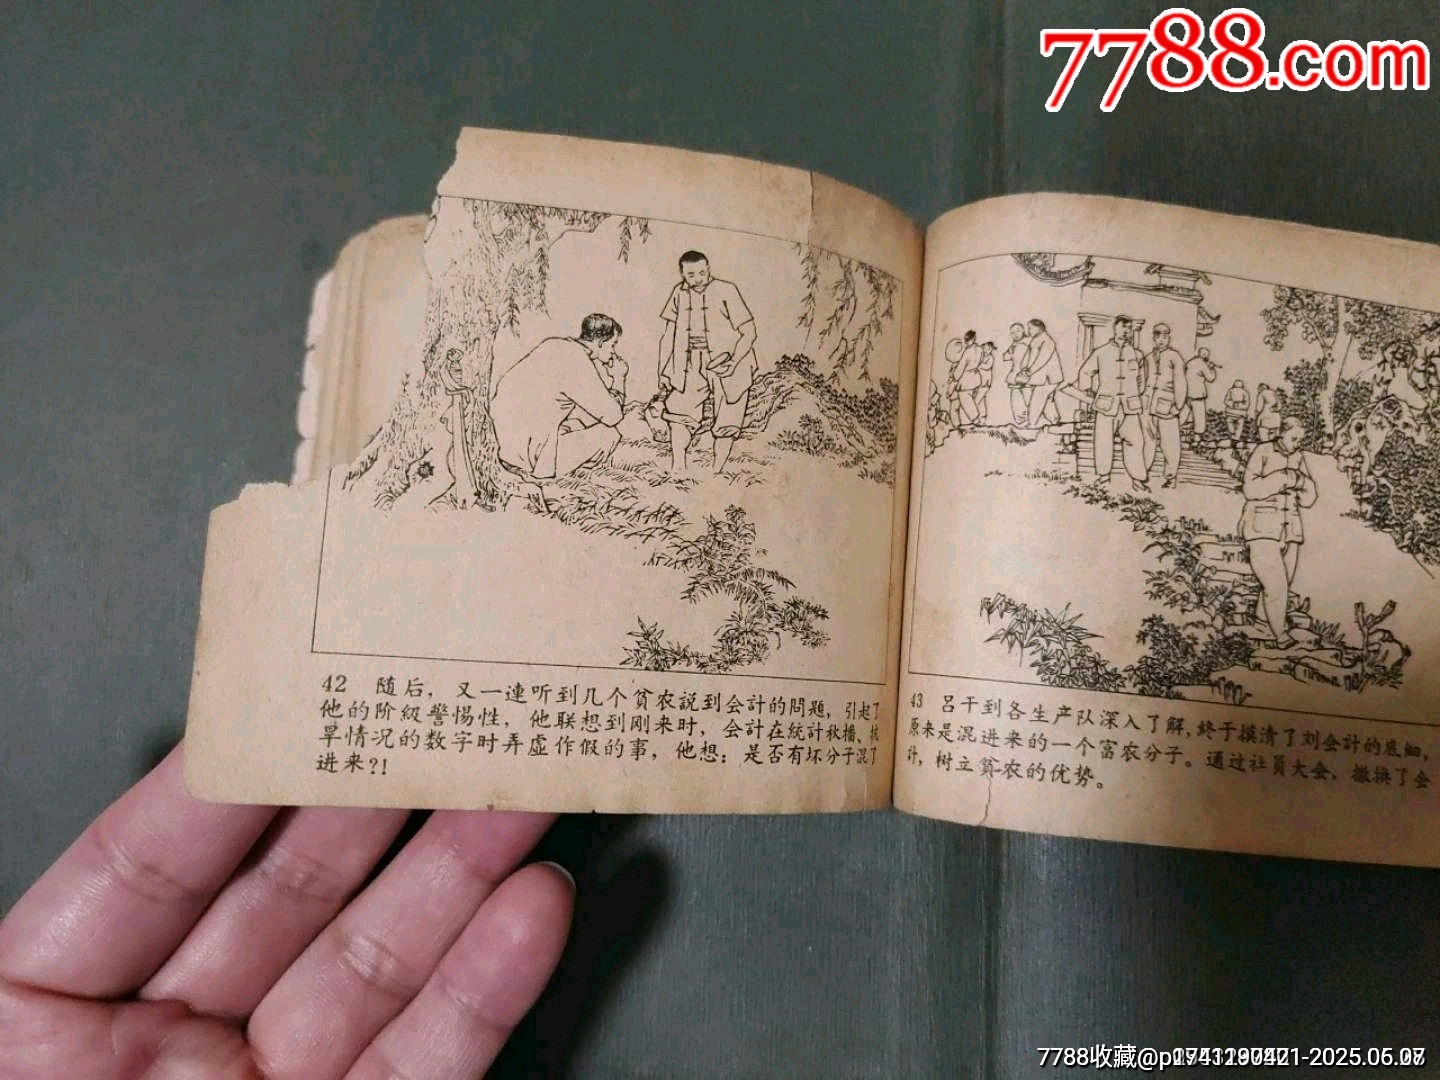 7788.com
42 随后，又一連听到几个貧农説到会計的問題，引起了
他的阶級警惕性，他联想到刚来时，会計在統計秋播、抗
旱情况的数字时弄虚作假的事，他想：是否有坏分子混了
进来？！
43 吕干到各生产队深入了解，終于摸清了刘会計的底細，
原来是混进来的一个富农分子。通过社員大会，撤换了会
計，树立貧农的优势。
7788收藏